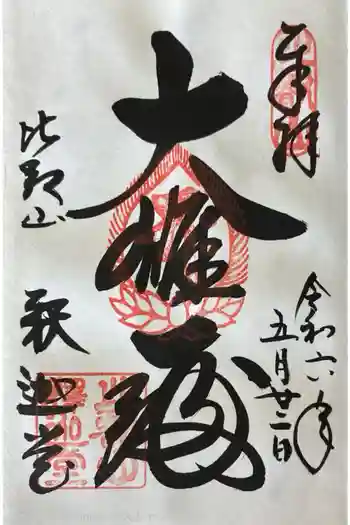 奉拝
令和六年
五月廿二日
大雄殿
比叡山
釈迦堂